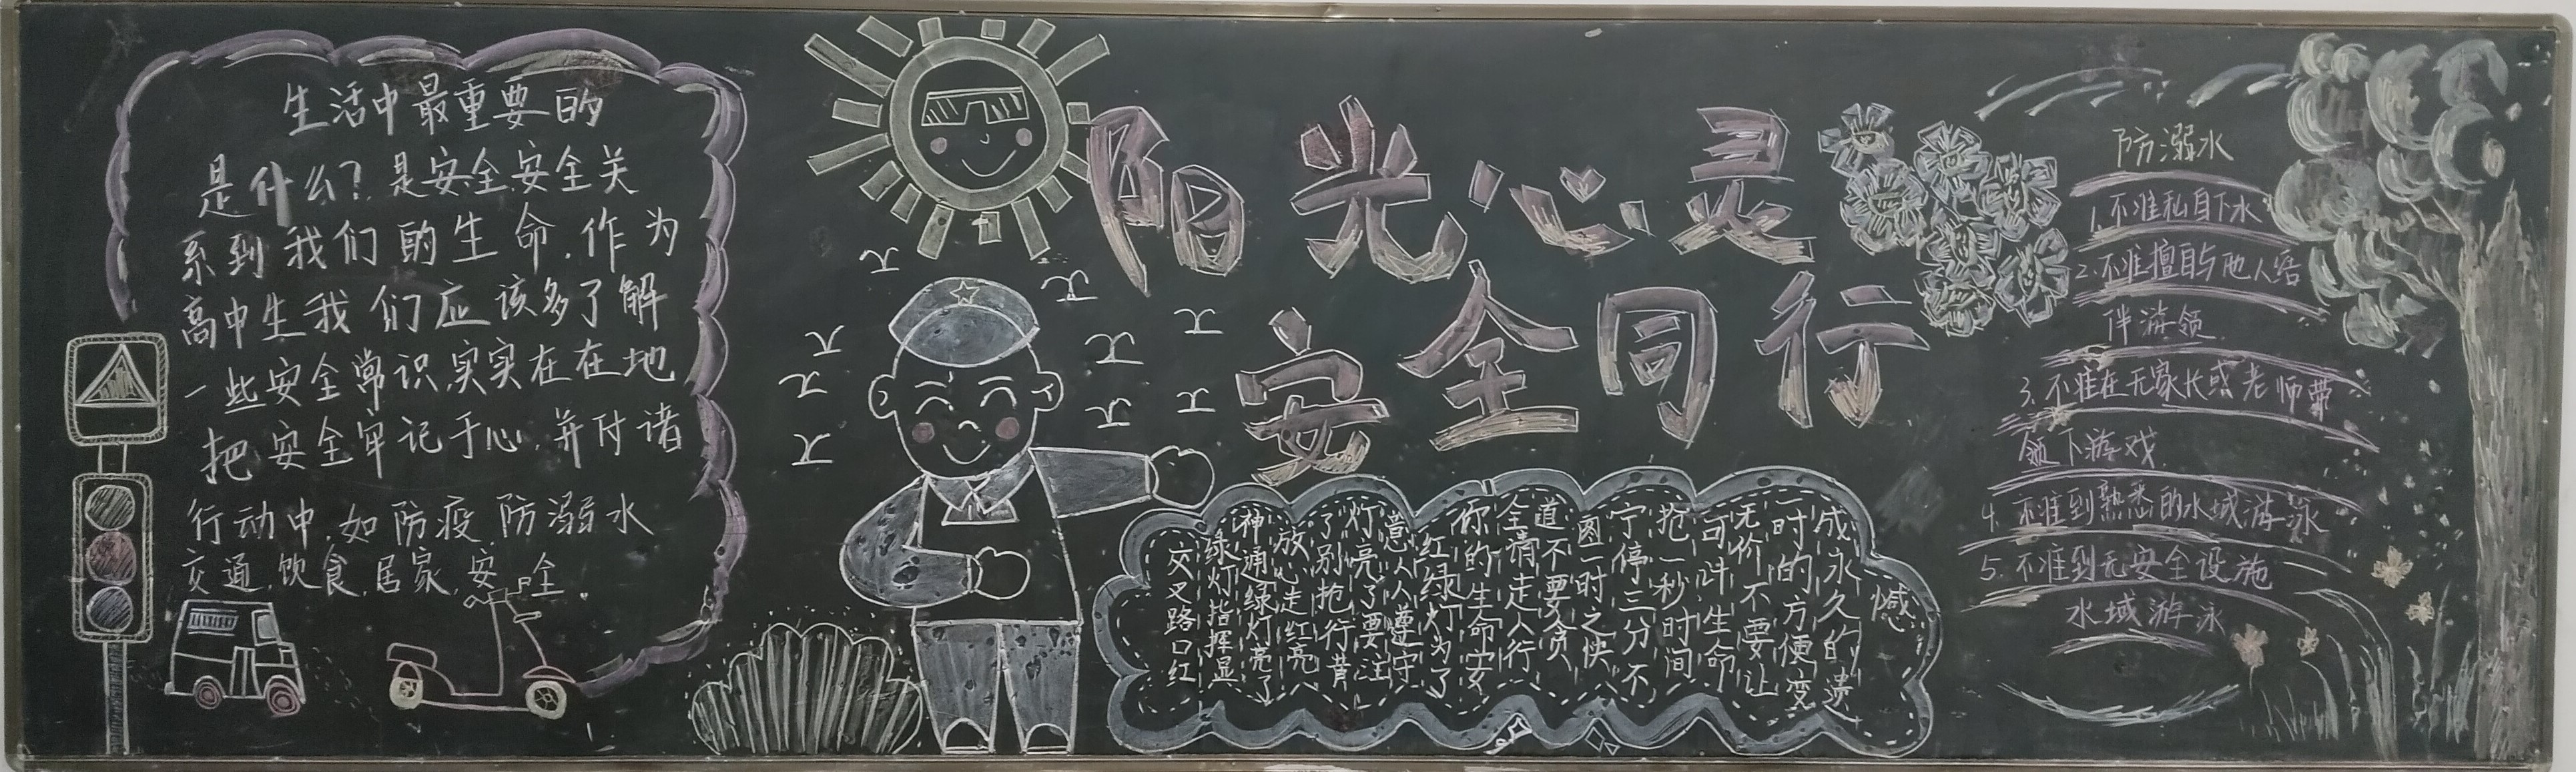 生活中最重要的
是什么?是安全.安全关
系到我们的生命.作为
高中生我们应该多了解
一些安全常识.实实在在地
把安全牢记于心.并付诸
行动中.如防疫.防溺水
交通.饮食.居家.安全
阳光心灵
安全同行
交叉路口红
绿灯指挥显
神通绿灯亮了
放心走红亮
了别抢行黄
灯亮了要注
意人人遵守
红绿灯为了
你的生命安
全请走人行
道不要贪
图一时之快
宁停三分不
抢一秒时间
可叶生命
无价不要让
一时的方便变
成永久的遗
憾
防溺水
1.不准私自下水
2.不准擅自与他人结
伴游领
3.不准在无家长或老师带
领下游戏
4.不准到熟悉的水域游泳
5.不准到无安全设施
水域游泳